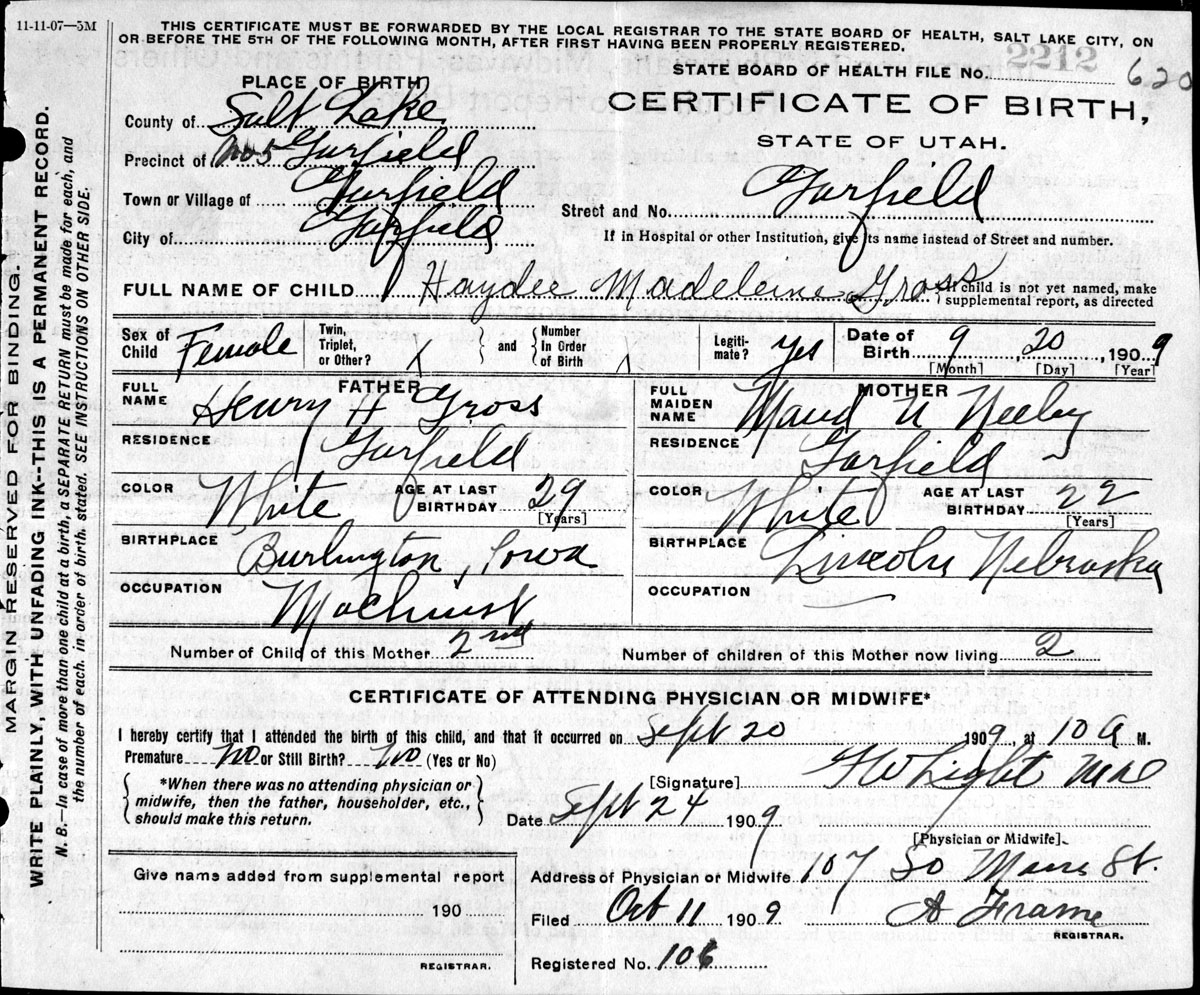 11-11-07—5M
THIS CERTIFICATE MUST BE FORWARDED BY THE LOCAL REGISTRAR TO THE STATE BOARD OF HEALTH, SALT LAKE CITY, ON
OR BEFORE THE 5TH OF THE FOLLOWING MONTH, AFTER FIRST HAVING BEEN PROPERLY REGISTERED.
STATE BOARD OF HEALTH FILE NO. 2212 620
PLACE OF BIRTH
CERTIFICATE OF BIRTH,
STATE OF UTAH.
County of Salt Lake
Precinct of No 5 Garfield
Town or Village of Garfield
Street and No. Garfield
City of Garfield
If in Hospital or other Institution, give its name instead of Street and number.
FULL NAME OF CHILD Haydee Madeleine Gross
If child is not yet named, make
supplemental report, as directed
Sex of Child Female
Twin, Triplet, or Other?
and
Number In Order of Birth
Legiti-mate? Yes
Date of Birth 9 20, 1909
[Month] [Day] [Year]
FATHER
FULL NAME Henry H Gross
RESIDENCE Garfield
COLOR White AGE AT LAST BIRTHDAY 29
[Years]
BIRTHPLACE Burlington, Iowa
OCCUPATION Machinist
MOTHER
FULL MAIDEN NAME Maud N Neeley
RESIDENCE Garfield
COLOR White AGE AT LAST BIRTHDAY 22
[Years]
BIRTHPLACE Lincoln Nebraska
OCCUPATION
Number of Child of this Mother 2nd
Number of children of this Mother now living 2
CERTIFICATE OF ATTENDING PHYSICIAN OR MIDWIFE*
I hereby certify that I attended the birth of this child, and that it occurred on Sept 20 1909, at 10 A M.
Premature No or Still Birth? No (Yes or No)
*When there was no attending physician or
midwife, then the father, householder, etc.,
should make this return.
[Signature]
Date Sept 24 1909
[Physician or Midwife].
Give name added from supplemental report
190
REGISTRAR.
Address of Physician or Midwife 107 So Main St.
Filed Oct 11 1909 A Frame
REGISTRAR.
Registered No. 106
MARGIN RESERVED FOR BINDING.
WRITE PLAINLY, WITH UNFADING INK--THIS IS A PERMANENT RECORD.
N. B.—In case of more than one child at a birth, a SEPARATE RETURN must be made for each, and
the number of each, in order of birth, stated. SEE INSTRUCTIONS ON OTHER SIDE.